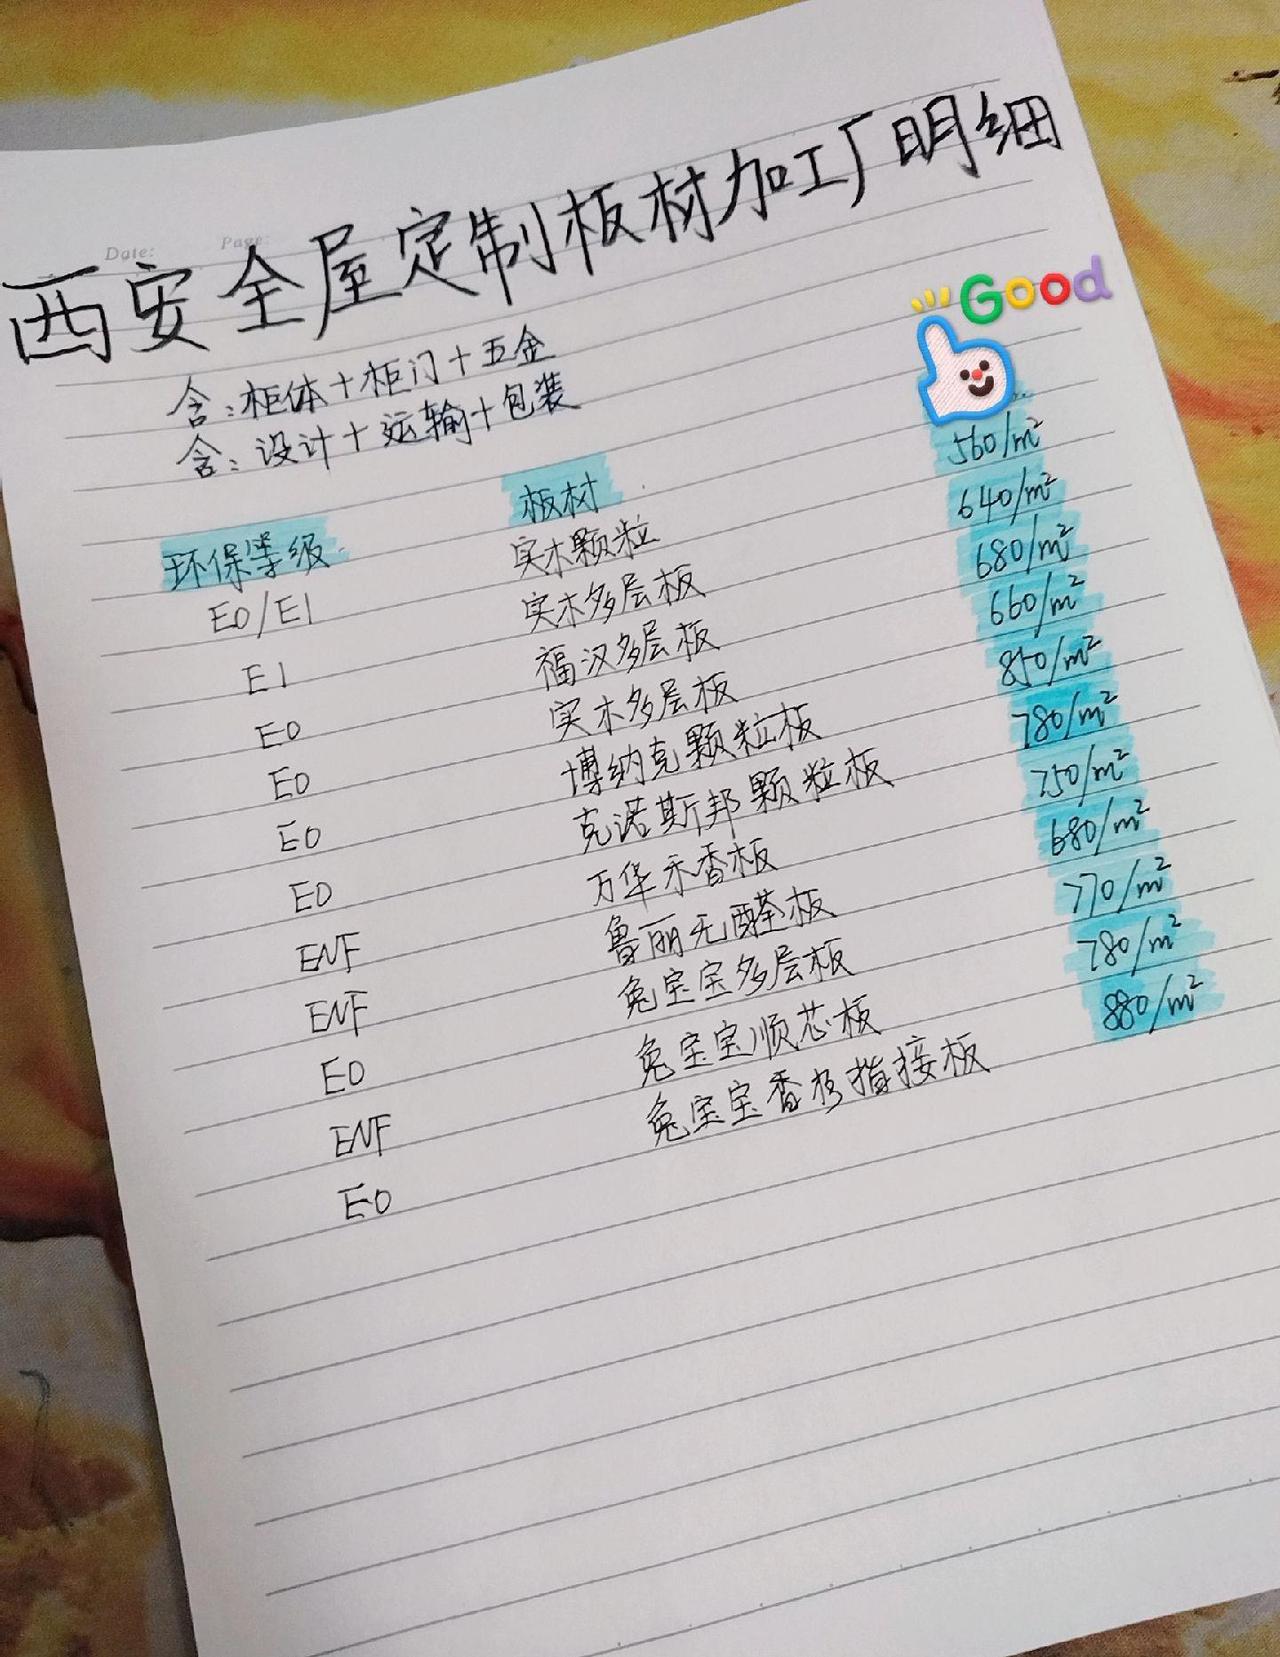 Date: Page:
西安全屋定制板材加工厂明细
Good
含：柜体＋柜门＋五金
含：设计＋运输＋包装
环保等级 板材
E0/E1 实木颗粒 560/m²
E1 实木多层板 640/m²
E0 福汉多层板 680/m²
E0 实木多层板 660/m²
E0 博纳克颗粒板 850/m²
E0 克诺斯邦颗粒板 780/m²
ENF 万华禾香板 750/m²
ENF 鲁丽无醛板 680/m²
E0 兔宝宝多层板 770/m²
ENF 兔宝宝顺芯板 780/m²
E0 兔宝宝香杉指接板 880/m²